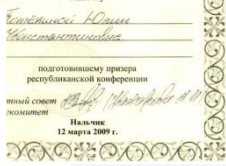 Юлии
Константиновна
подготовившему призера
республиканской конференции
тный совет
комитет
Нальчик
12 марта 2009 г.